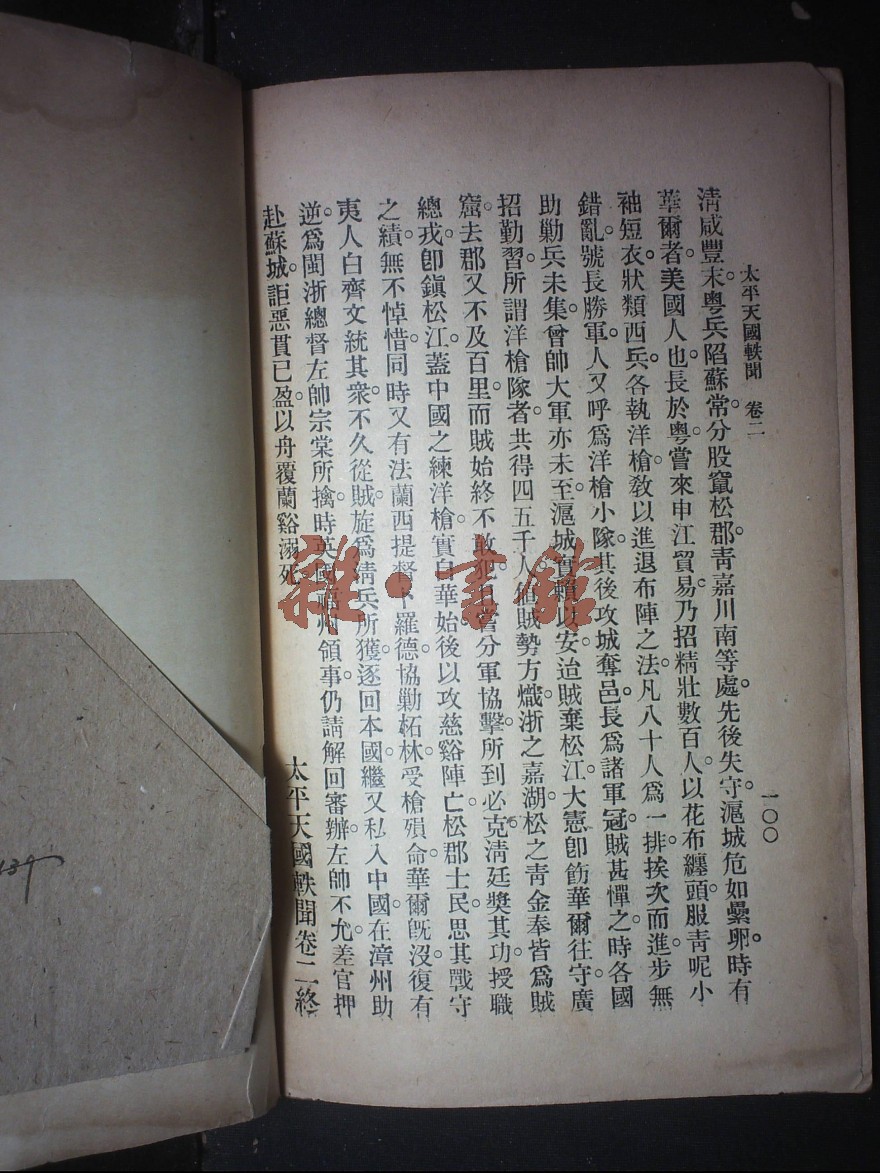 太平天國軼聞　卷二　一〇〇
清咸豐末。粵兵陷蘇常。分股竄松郡。靑嘉川南等處。先後失守。滬城危如纍卵。時有
華爾者。美國人也。長於粵。嘗來申江貿易。乃招精壯數百人。以花布纏頭。服靑呢小
袖短衣。狀類西兵。各執洋槍。敎以進退布陣之法。凡八十人爲一排。挨次而進。步無
錯亂。號長勝軍。人又呼爲洋槍小隊。其後攻城奪邑。長爲諸軍冠。賊甚憚之。時各國
助勦兵未集。曾帥大軍亦未至。滬城實賴以安。迨賊棄松江。大憲卽飭華爾往守。廣
招勤習。所謂洋槍隊者。共得四五千人。值賊勢方熾。浙之嘉湖。松之青金奉。皆爲賊
窟。去郡又不及百里。而賊始終不敢犯。且嘗分軍協擊。所到必克。淸廷獎其功。授職
總戎。卽鎭松江。蓋中國之練洋槍。實自華始。後以攻慈谿陣亡。松郡士民思其戰守
之績。無不悼惜。同時又有法蘭西提督卜羅德。協勦柘林。受槍殞命。華爾旣沒。復有
夷人白齊文統其衆。不久從賊。旋爲淸兵所獲。逐回本國。繼又私入中國。在漳州助
逆。爲閩浙總督左帥宗棠所擒。時英國福州領事。仍請解回審辦。左帥不允。差官押
赴蘇城。詎惡貫已盈。以舟覆蘭谿溺死。
太平天國軼聞卷二終
雜·書館